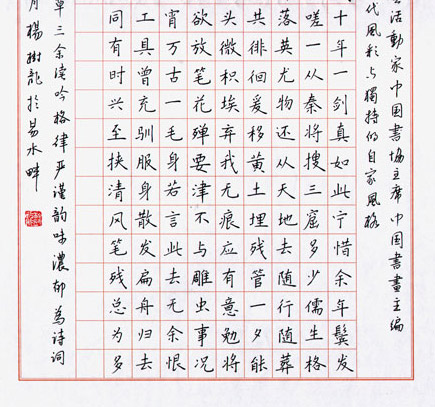 活動家中国書協主席中国書畫主编
代風彩与獨特的自家風格
十年一剑真如此宁惜余年鬓发
嗟一从秦将搜三窟多少儒生格
落英尤物还从天地去随行随葬
共徘徊爰移黄土埋残管一夕能
头微积埃弃我无痕应有意勉将
欲放笔花殚要津不与雕虫事况
宵万古一毛身若言此去无余恨
工具曾充驯服身散发扁舟归去
同有时兴至挟清风笔残总为多
三余读吟格律严谨韵味濃郁為诗词
月楊树龍於易水畔